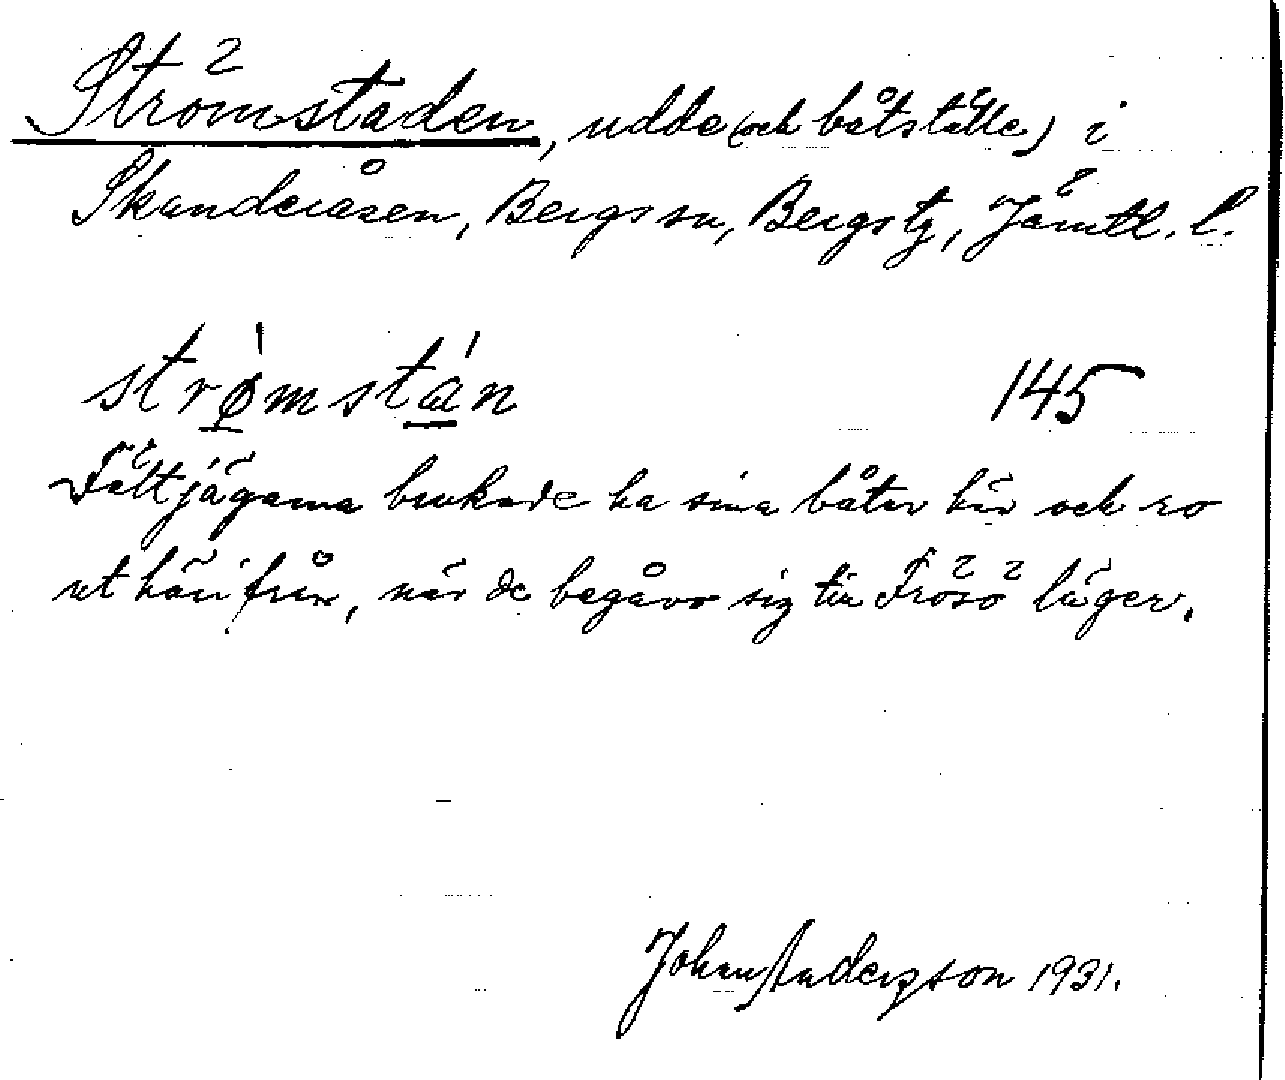 Strömstaden, udde (och båtställe) i
Skanderåsen, Bergs sn, Bergs tg, Jämtl. l.
strø̀mstán 145
Fältjägarna brukade ha sina båtar här och ro
ut härifrån, när de begåvo sig till Frösö läger.
Johan Anderzson 1931.